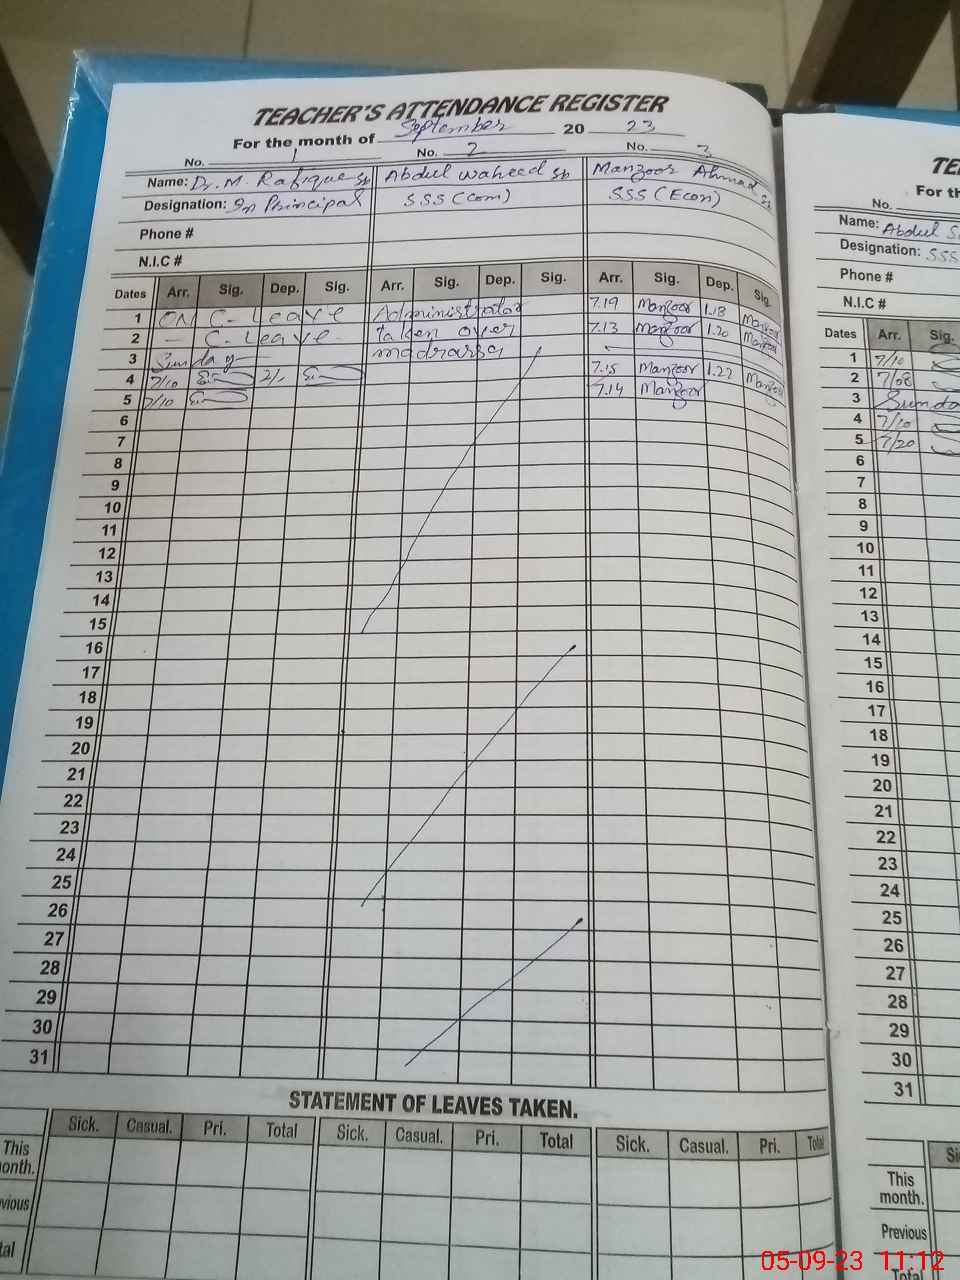 TEACHER'S ATTENDANCE REGISTER
For the month of September 20 23
No. 1 No. 2 No. 3
Name: Dr. M. Rafique Sb Abdul Waheed Sb Manzoor Ahmad Sb
Designation: In Principal SSS (Com) SSS (Econ)
Phone #
N.I.C #
Dates Arr. Sig. Dep. Sig. Arr. Sig. Dep. Sig. Arr. Sig. Dep. Sig.
1 ON C. Leave Administrator 7.19 Manzoor 1.18 Manzoor
2 — C. Leave taken over 7.13 Manzoor 1.20 Manzoor
3 Sunday madrarsa
4 7/10 2/. 7.15 Manzoor 1.22 Manzoor
5 7/10 7.14 Manzoor
6
7
8
9
10
11
12
13
14
15
16
17
18
19
20
21
22
23
24
25
26
27
28
29
30
31
STATEMENT OF LEAVES TAKEN.
Sick. Casual. Pri. Total Sick. Casual. Pri. Total Sick. Casual. Pri. Total
This
onth.
vious
tal
TE
For th
No.
Name: Abdul S
Designation: SSS
Phone #
N.I.C #
Dates Arr. Sig.
1 7/10
2 7/08
3 Sunda
4 7/10
5 7/20
6
7
8
9
10
11
12
13
14
15
16
17
18
19
20
21
22
23
24
25
26
27
28
29
30
31
Si
This
month.
Previous
Total
05-09-23 11:12